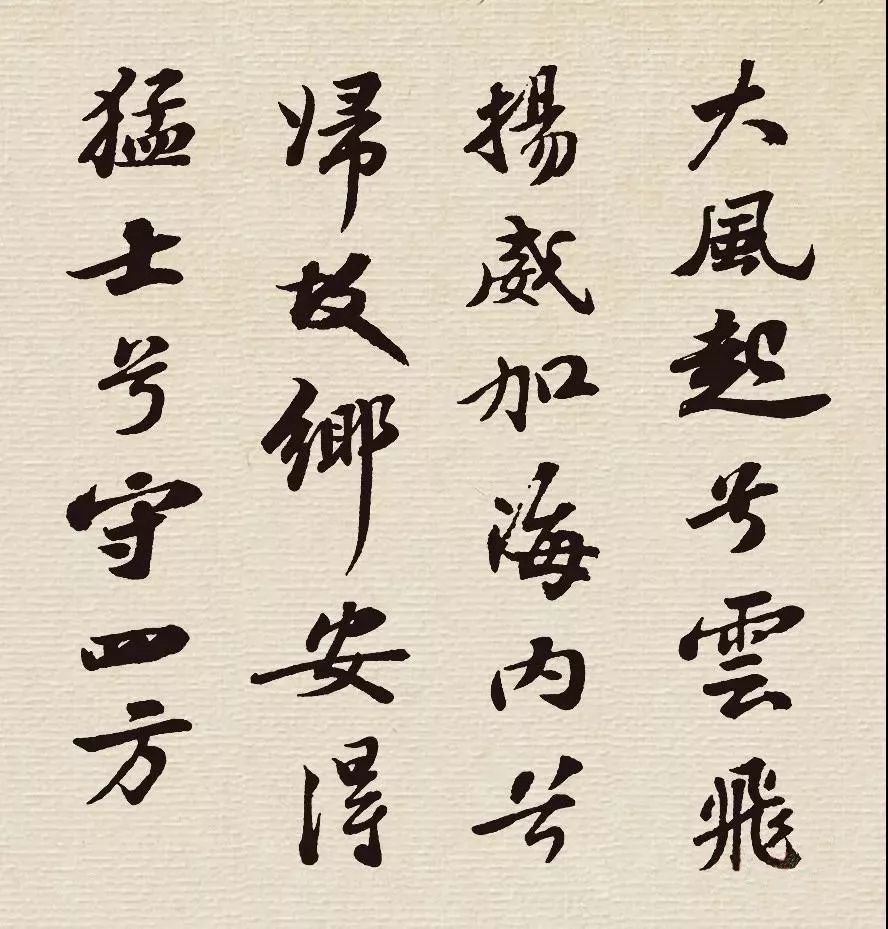 大風起兮雲飛
揚威加海内兮
帰故鄉安得
猛士兮守四方